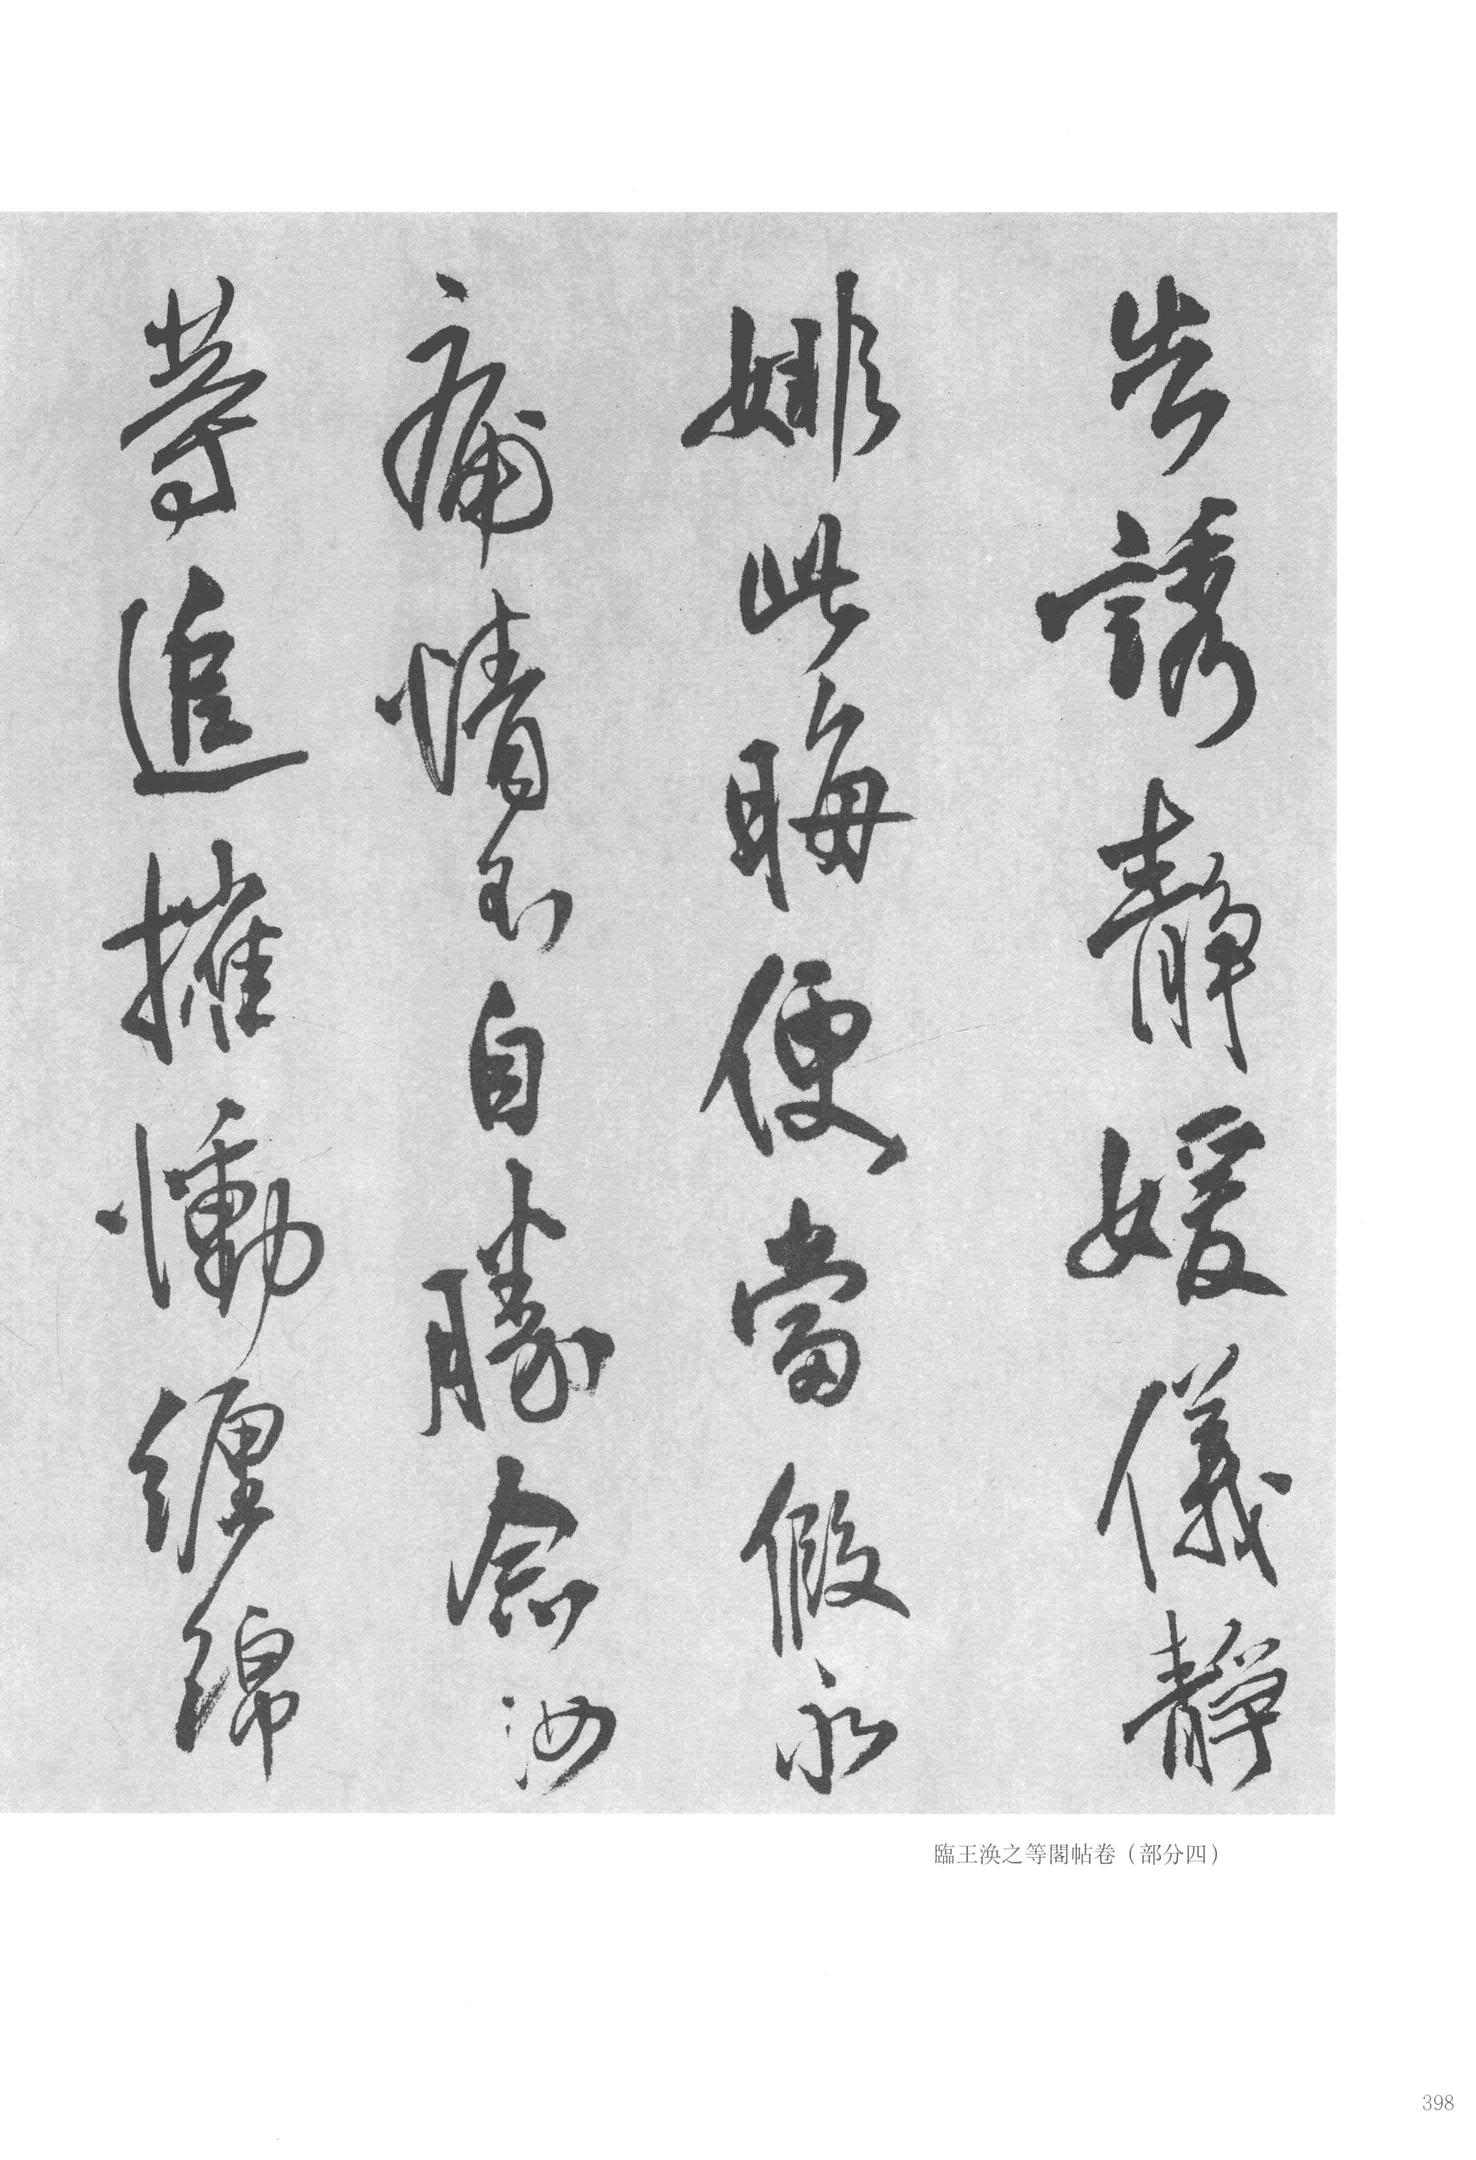 告誘靜媛儀靜
姚此晦便當假永
痛情不自勝念汝
等追摧慟纏綿
臨王渙之等閣帖卷（部分四）
398